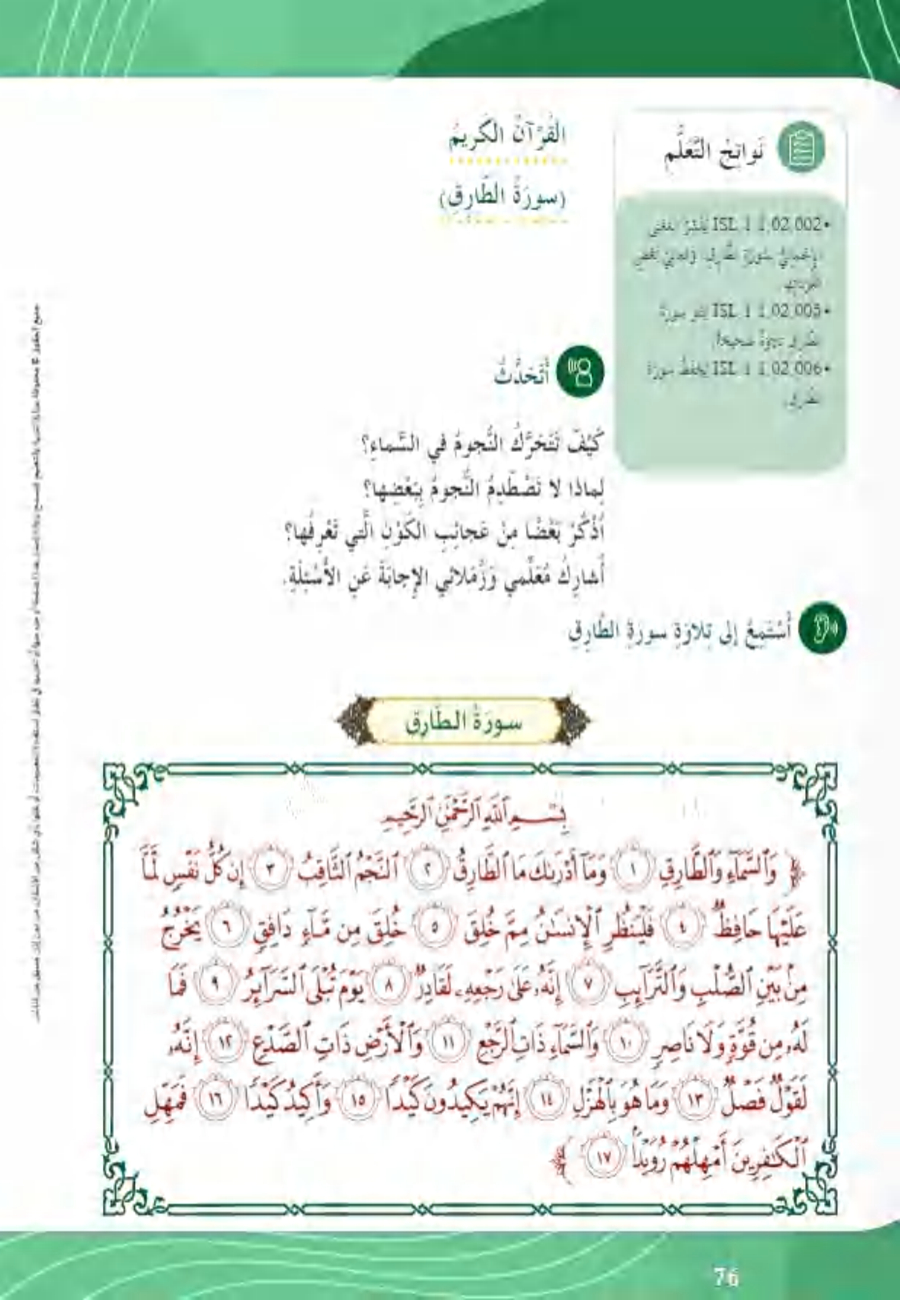 القُرْآنُ الكَريمُ
(سورَةُ الطّارِقِ)
نَواتِجُ التَّعَلُّمِ
•ISL.1.1.02.002 يُفَسِّرُ المَعْنى
الإِجْماليَّ لِسورَةِ الطّارِقِ، وَمَعانِيَ بَعْضِ
مُفْرَداتِها.
•ISL.1.1.02.005 يَتْلو سورَةَ
الطّارِقِ تِلاوَةً صَحيحَةً.
•ISL.1.1.02.006 يَحْفَظُ سورَةَ
الطّارِقِ.
أَتَحَدَّثُ
كَيْفَ تَتَحَرَّكُ النُّجومُ في السَّماءِ؟
لِماذا لا تَصْطَدِمُ النُّجومُ بِبَعْضِها؟
أَذْكُرُ بَعْضًا مِنْ عَجائِبِ الكَوْنِ الَّتي تَعْرِفُها؟
أُشارِكُ مُعَلِّمي وَزُمَلائي الإِجابَةَ عَنِ الأَسْئِلَةِ.
أَسْتَمِعُ إلى تِلاوَةِ سورَةِ الطّارِقِ
سورَةُ الطّارِقِ
بِسْمِ ٱللَّهِ ٱلرَّحْمَٰنِ ٱلرَّحِيمِ
﴿ وَٱلسَّمَآءِ وَٱلطَّارِقِ ١ وَمَآ أَدْرَىٰكَ مَا ٱلطَّارِقُ ٢ ٱلنَّجْمُ ٱلثَّاقِبُ ٣ إِن كُلُّ نَفْسٍ لَّمَّا
عَلَيْهَا حَافِظٌ ٤ فَلْيَنظُرِ ٱلْإِنسَٰنُ مِمَّ خُلِقَ ٥ خُلِقَ مِن مَّآءٍ دَافِقٍ ٦ يَخْرُجُ
مِنۢ بَيْنِ ٱلصُّلْبِ وَٱلتَّرَآئِبِ ٧ إِنَّهُۥ عَلَىٰ رَجْعِهِۦ لَقَادِرٌ ٨ يَوْمَ تُبْلَى ٱلسَّرَآئِرُ ٩ فَمَا
لَهُۥ مِن قُوَّةٍ وَلَا نَاصِرٍ ١٠ وَٱلسَّمَآءِ ذَاتِ ٱلرَّجْعِ ١١ وَٱلْأَرْضِ ذَاتِ ٱلصَّدْعِ ١٢ إِنَّهُۥ
لَقَوْلٌ فَصْلٌ ١٣ وَمَا هُوَ بِٱلْهَزْلِ ١٤ إِنَّهُمْ يَكِيدُونَ كَيْدًا ١٥ وَأَكِيدُ كَيْدًا ١٦ فَمَهِّلِ
ٱلْكَٰفِرِينَ أَمْهِلْهُمْ رُوَيْدًۢا ١٧ ﴾
76